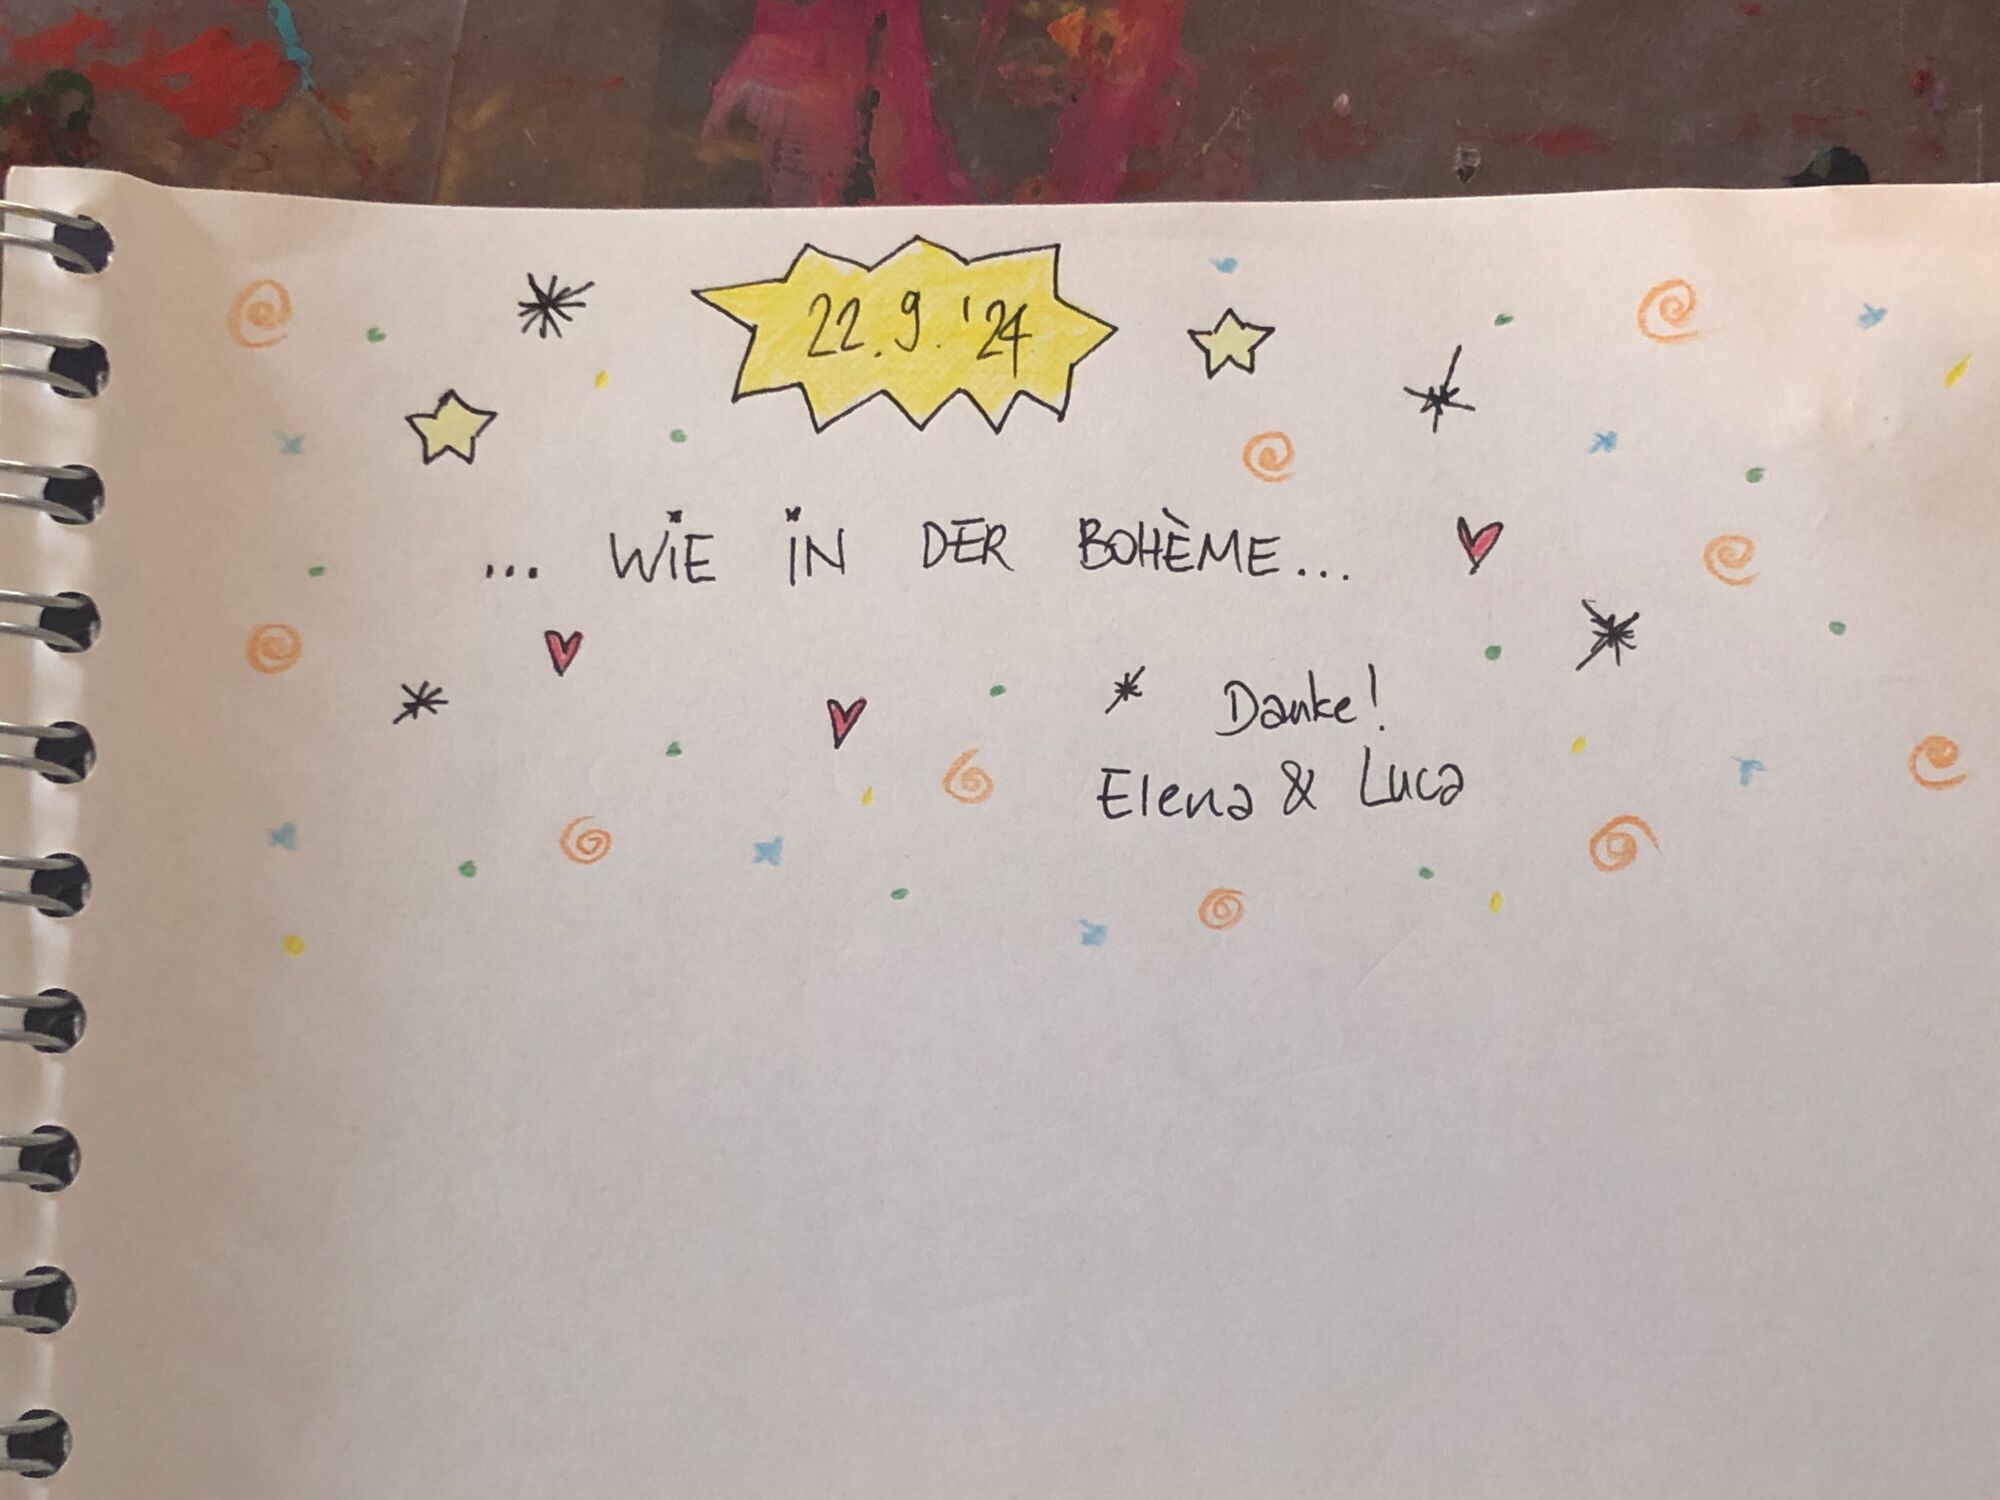 22.9.'24
... WIE IN DER BOHÈME...
Danke!
Elena & Luca